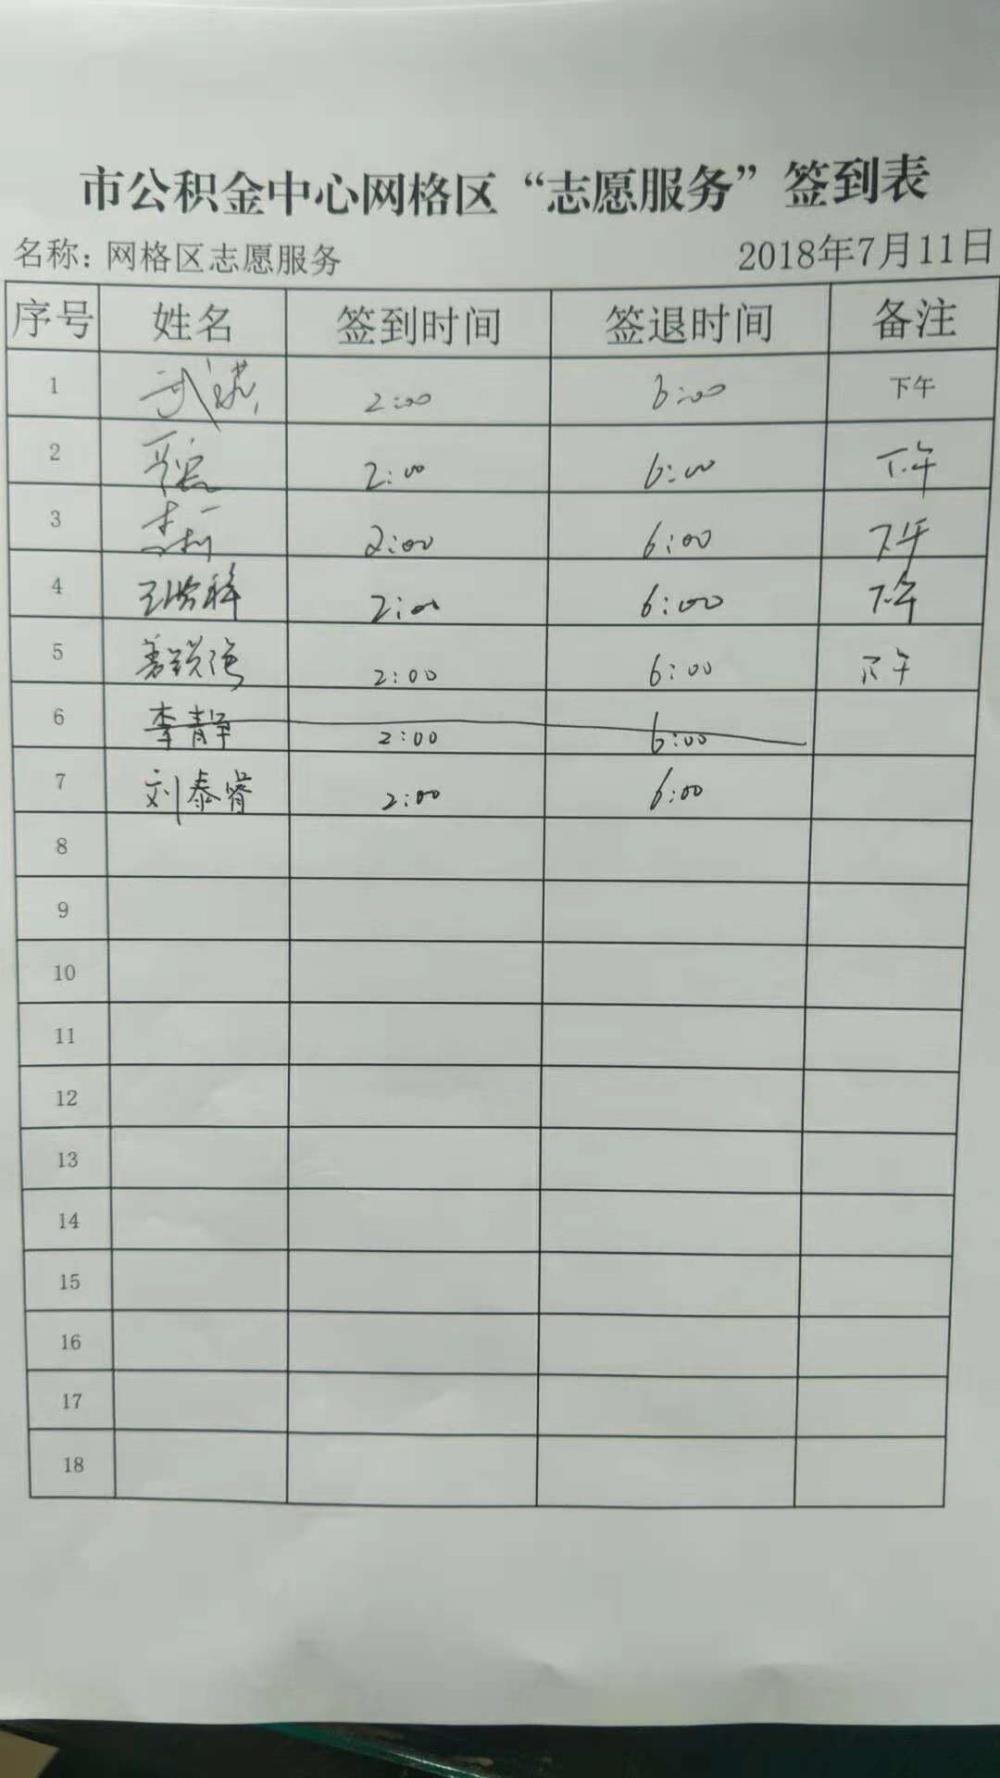 市公积金中心网格区“志愿服务”签到表
名称：网格区志愿服务 2018年7月11日
序号 姓名 签到时间 签退时间 备注
1 2:00 6:00 下午
2 2:00 6:00 下午
3 2:00 6:00 下午
4 2:00 6:00 下午
5 2:00 6:00 下午
6 李静 2:00 6:00
7 刘泰睿 2:00 6:00
8
9
10
11
12
13
14
15
16
17
18